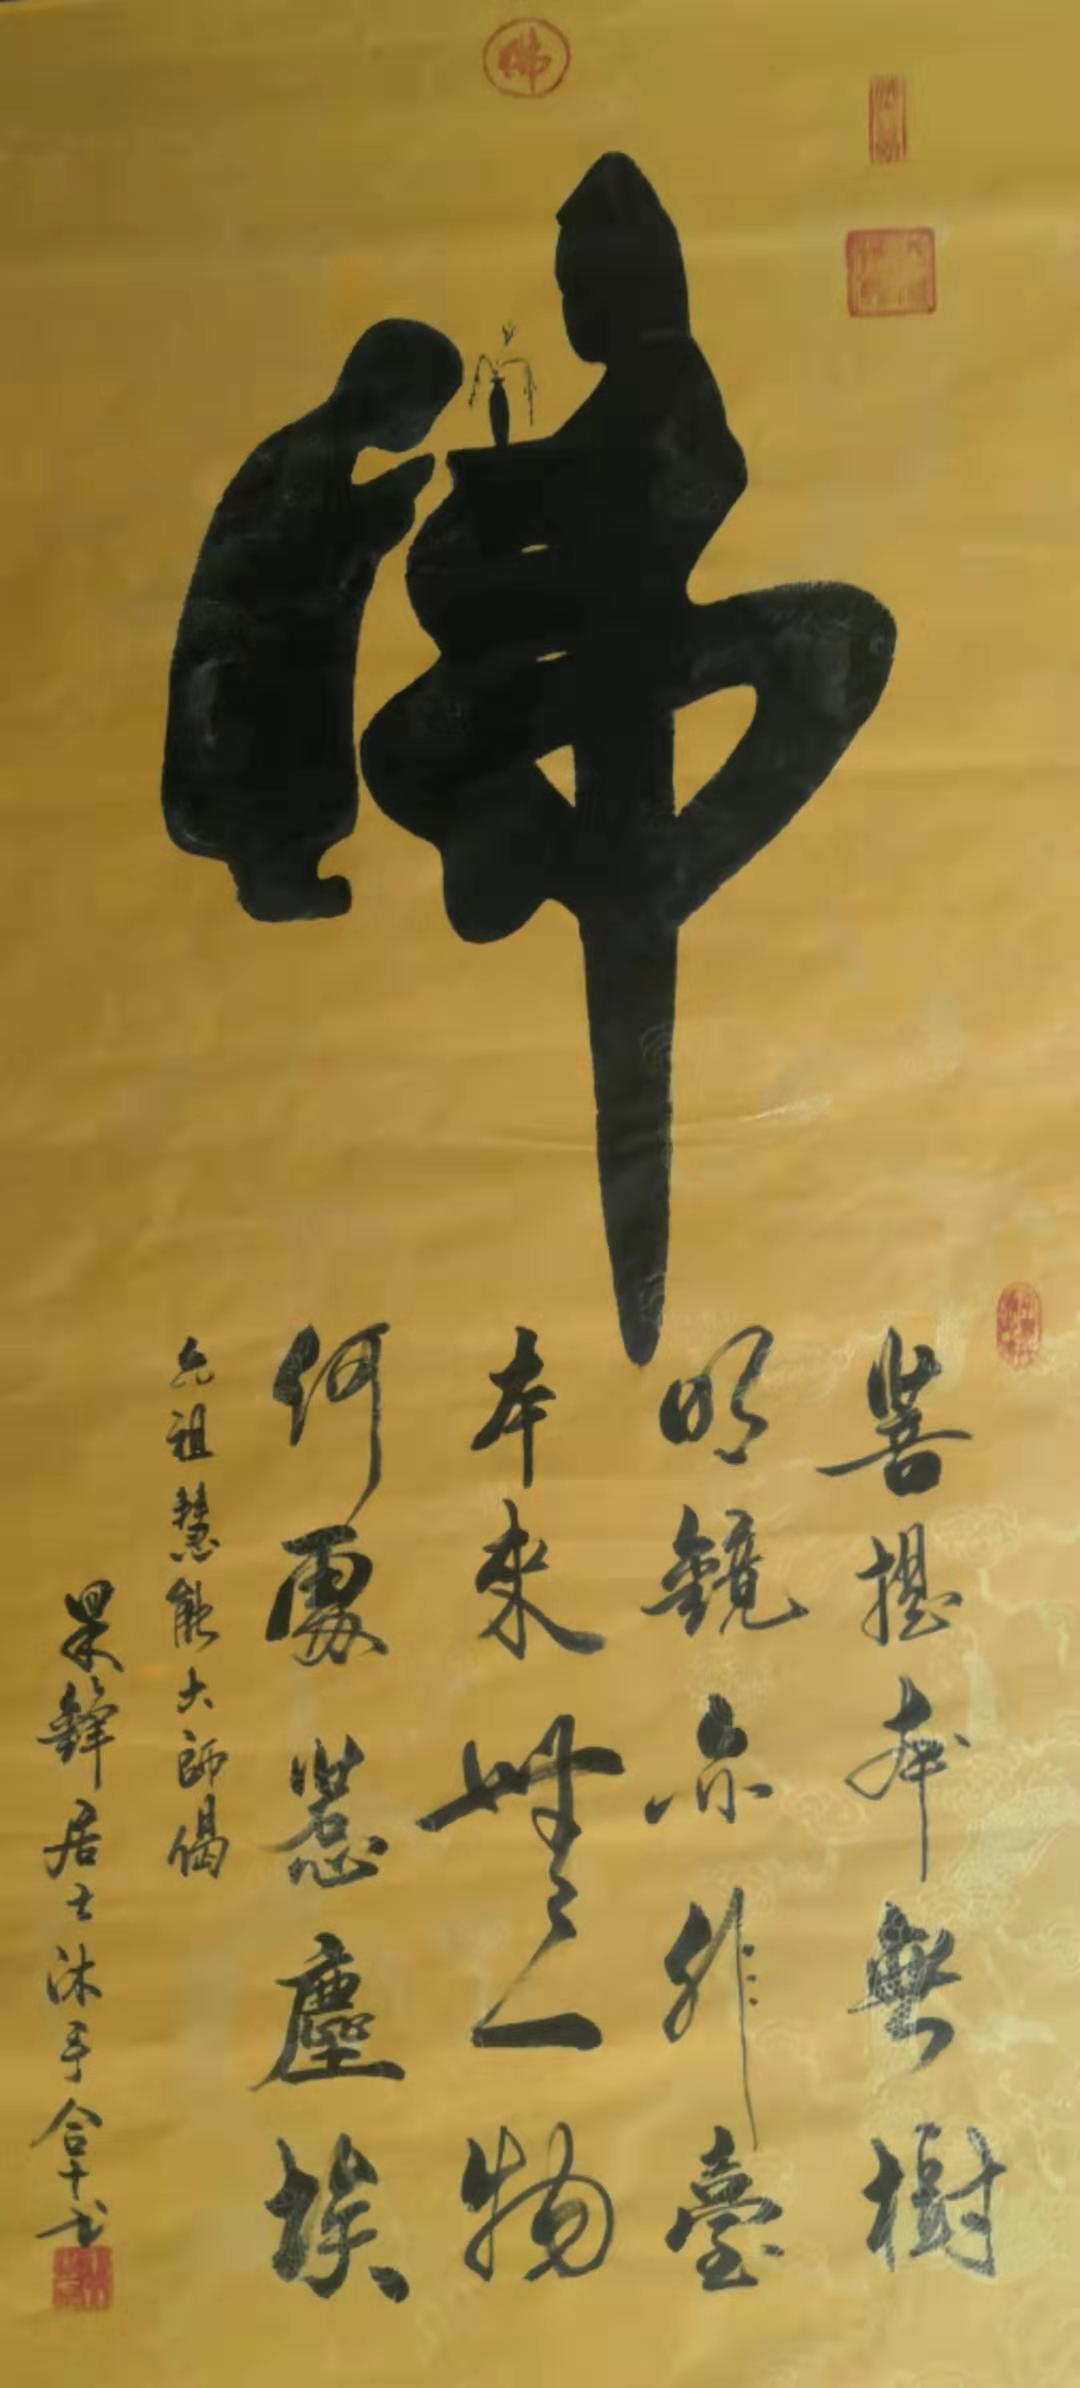 佛
佛
菩提本無樹
明鏡亦非臺
本來無一物
何處惹塵埃
六祖慧能大師偈
果鋒居士沐手合十书